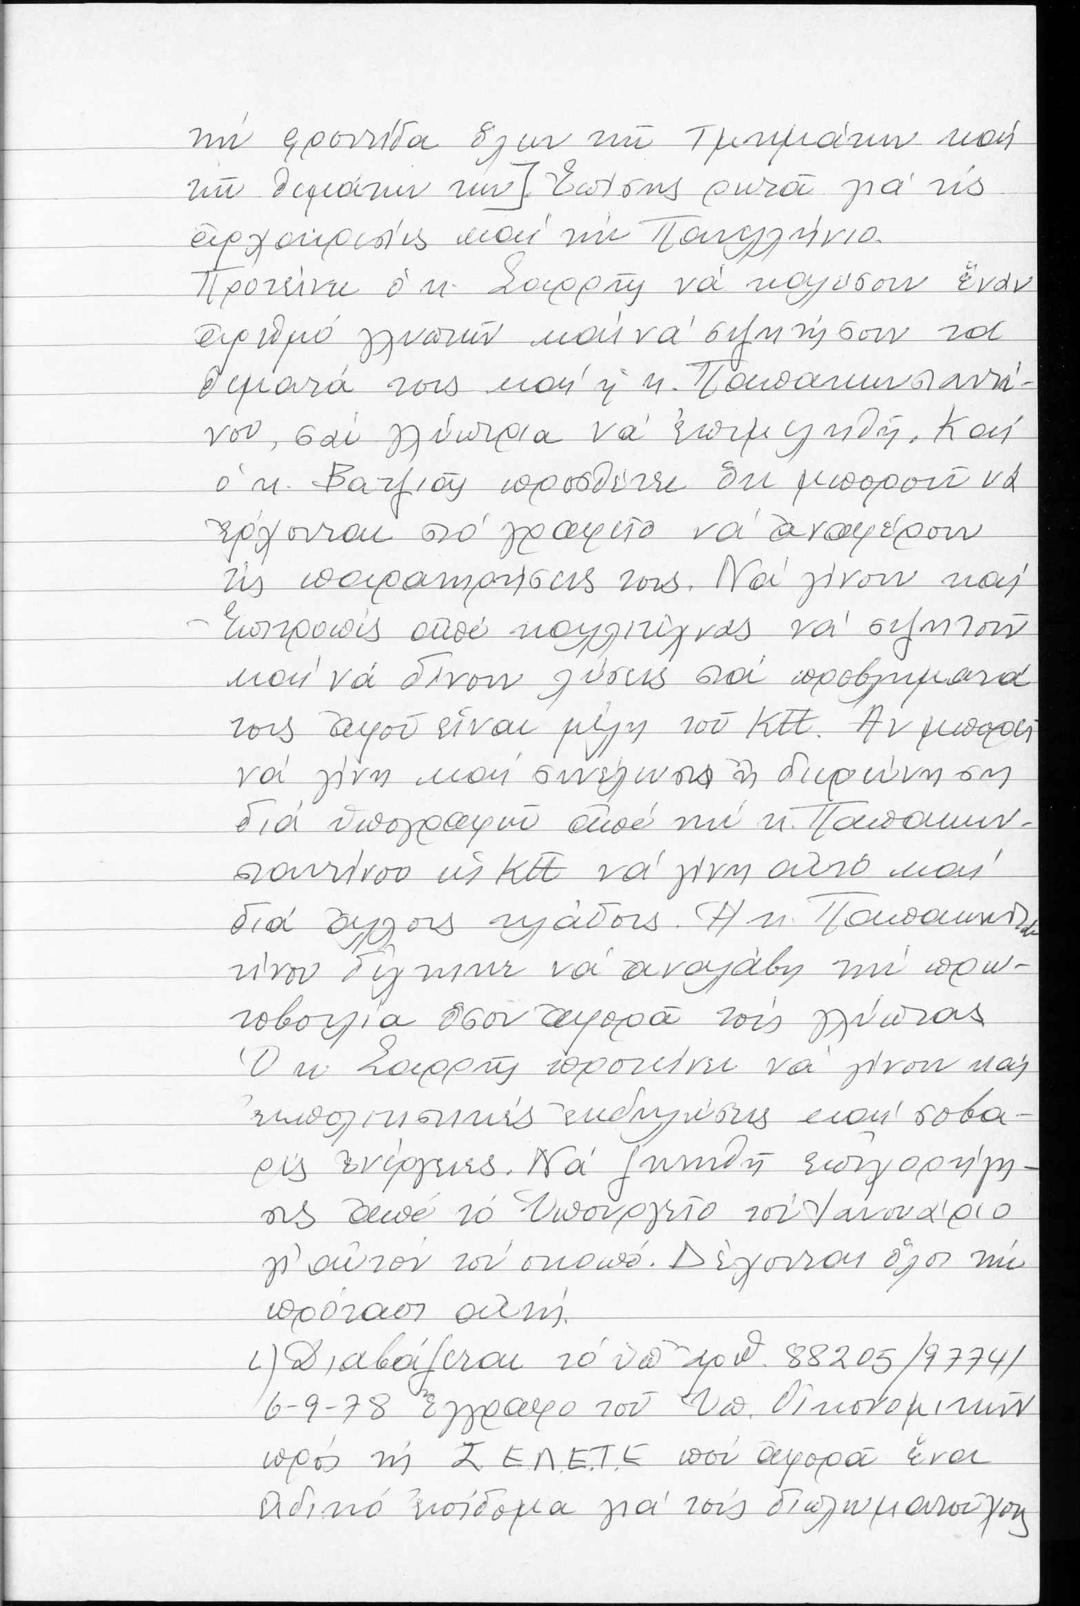 τήν φροντίδα ὅλων τῶν Τμημάτων καί
τῶν θεμάτων των] Ἐπίσης ρωτᾶ γιά τίς
ἀρχαιρεσίες καί τήν Πανελλήνιο.
Προτείνει ὁ κ. Σαρρῆς νά καλέσουν ἕναν
ἀριθμό γλυπτῶν καί νά συζητήσουν τά
θέματά τους καί ἡ κ. Παπακωνσταντί-
νου, σάν γλύπτρια νά ἐπιμεληθῆ. Καί
ὁ κ. Βατζιᾶς προσθέτει ὅτι μποροῦν νά
ἔρχονται στό γραφεῖο νά ἀναφέρουν
τίς παρατηρήσεις τους. Νά γίνουν καί
Ἐπιτροπές ἀπό καλλιτέχνας νά συζητοῦν
καί νά δίνουν λύσεις στά προβλήματά
τους ἀφοῦ εἶναι μέλη τοῦ ΚΠ. Ἄν μπορεῖ
νά γίνη καί συνέλευσις ἤ διερεύνηση
διά ὑπογραφῶν ἀπό τήν κ. Παπακων-
σταντίνου ὡς ΚΠ νά γίνη αὐτό καί
διά ἄλλους κλάδους. Ἡ κ. Παπακωνσταν
τίνου δέχτηκε νά ἀναλάβη τήν πρω-
τοβουλία ὅσον ἀφορᾶ τούς γλύπτας
Ὁ κ. Σαρρῆς προτείνει νά γίνουν καί
ἐκπολιτιστικές ἐκδηλώσεις καί σοβα-
ρές ἐνέργειες. Νά ζητηθῆ ἐπιχορήγη-
σις ἀπό τό Ὑπουργεῖο τόν Ἰανουάριο
γι' αὐτόν τόν σκοπό. Δέχονται ὅλοι τήν
πρότασι αὐτή.
ι) Διαβάζεται τό ὑπ' ἀριθ. 88205/9774/
6-9-78 ἔγγραφο τοῦ Ὑπ. Οἰκονομικῶν
πρός τή Σ.Ε.Λ.Ε.Τ.Ε πού ἀφορᾶ ἕνα
εἰδικό ἐπίδομα γιά τούς διπλωματούχους